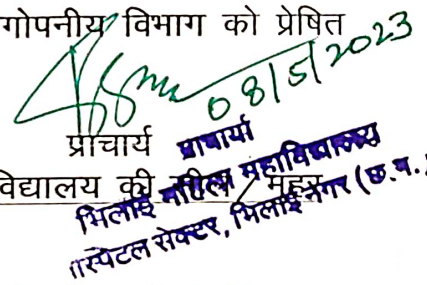 गोपनीय विभाग को प्रेषित
08/5/2023
प्राचार्य प्राचार्या
विद्यालय की सील / मुहर
भिलाई महिला महाविद्यालय
हास्पिटल सेक्टर, भिलाई नगर (छ.ग.)